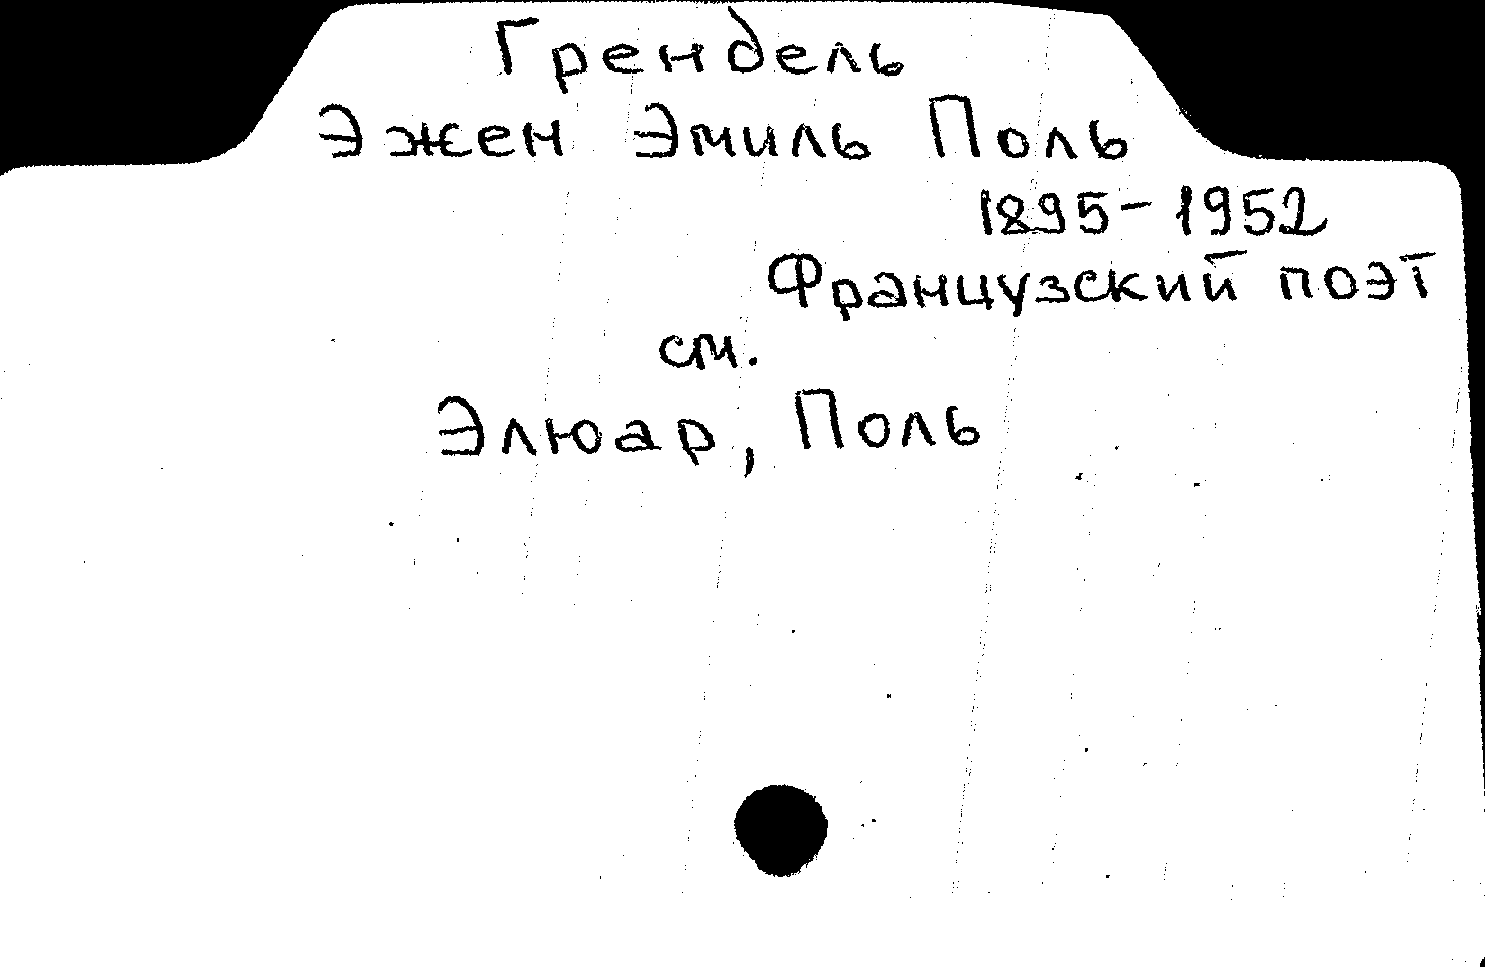 Грендель
Ээжен Эмиль Поль
1895-1952
Французский поэт
см.
Элюар, Поль